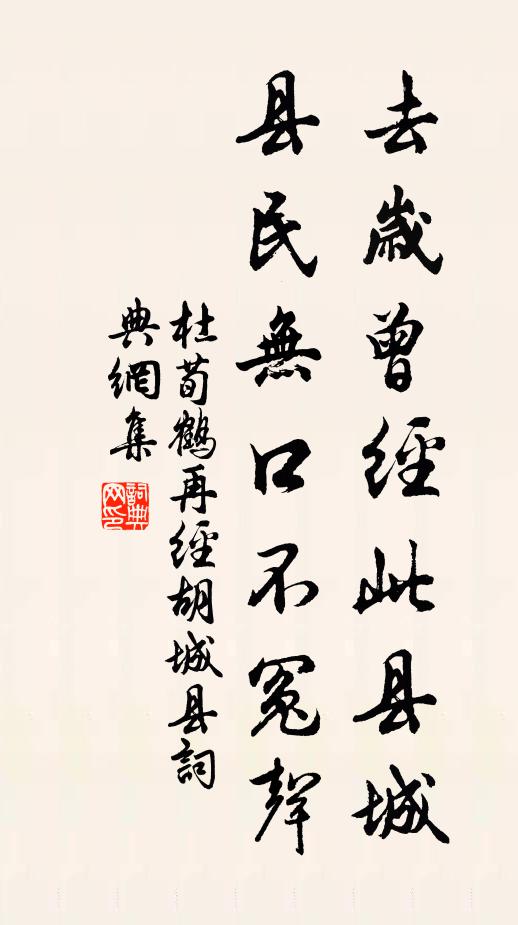 去歲曾經此县城
县民無口不冤聲
杜荀鶴再經胡城县詞
典網集
詞典
网印